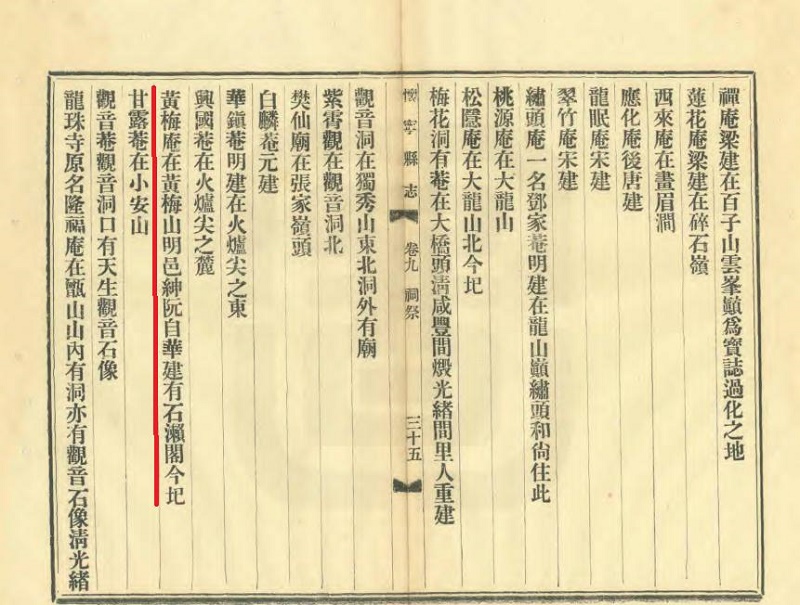 禪庵梁建在百子山雲峯巓爲寶誌過化之地
蓮花庵梁建在碎石嶺
西來庵在畫眉澗
應化庵後唐建
龍眠庵宋建
翠竹庵宋建
繡頭庵一名鄧家菴明建在龍山巓繡頭和尙住此
桃源庵在大龍山
松隱庵在大龍山北今圮
梅花洞有菴在大橋頭淸咸豐間燬光緒間里人重建
懷寧縣志
卷九 祠祭
三十五
觀音洞在獨秀山東北洞外有廟
紫霄觀在觀音洞北
樊仙廟在張家嶺頭
白麟菴元建
華鎭菴明建在火爐尖之東
興國菴在火爐尖之麓
黃梅庵在黃梅山明邑紳阮自華建有石瀨閣今圮
甘露菴在小安山
觀音菴觀音洞口有天生觀音石像
龍珠寺原名隆福庵在甑山山內有洞亦有觀音石像淸光緒